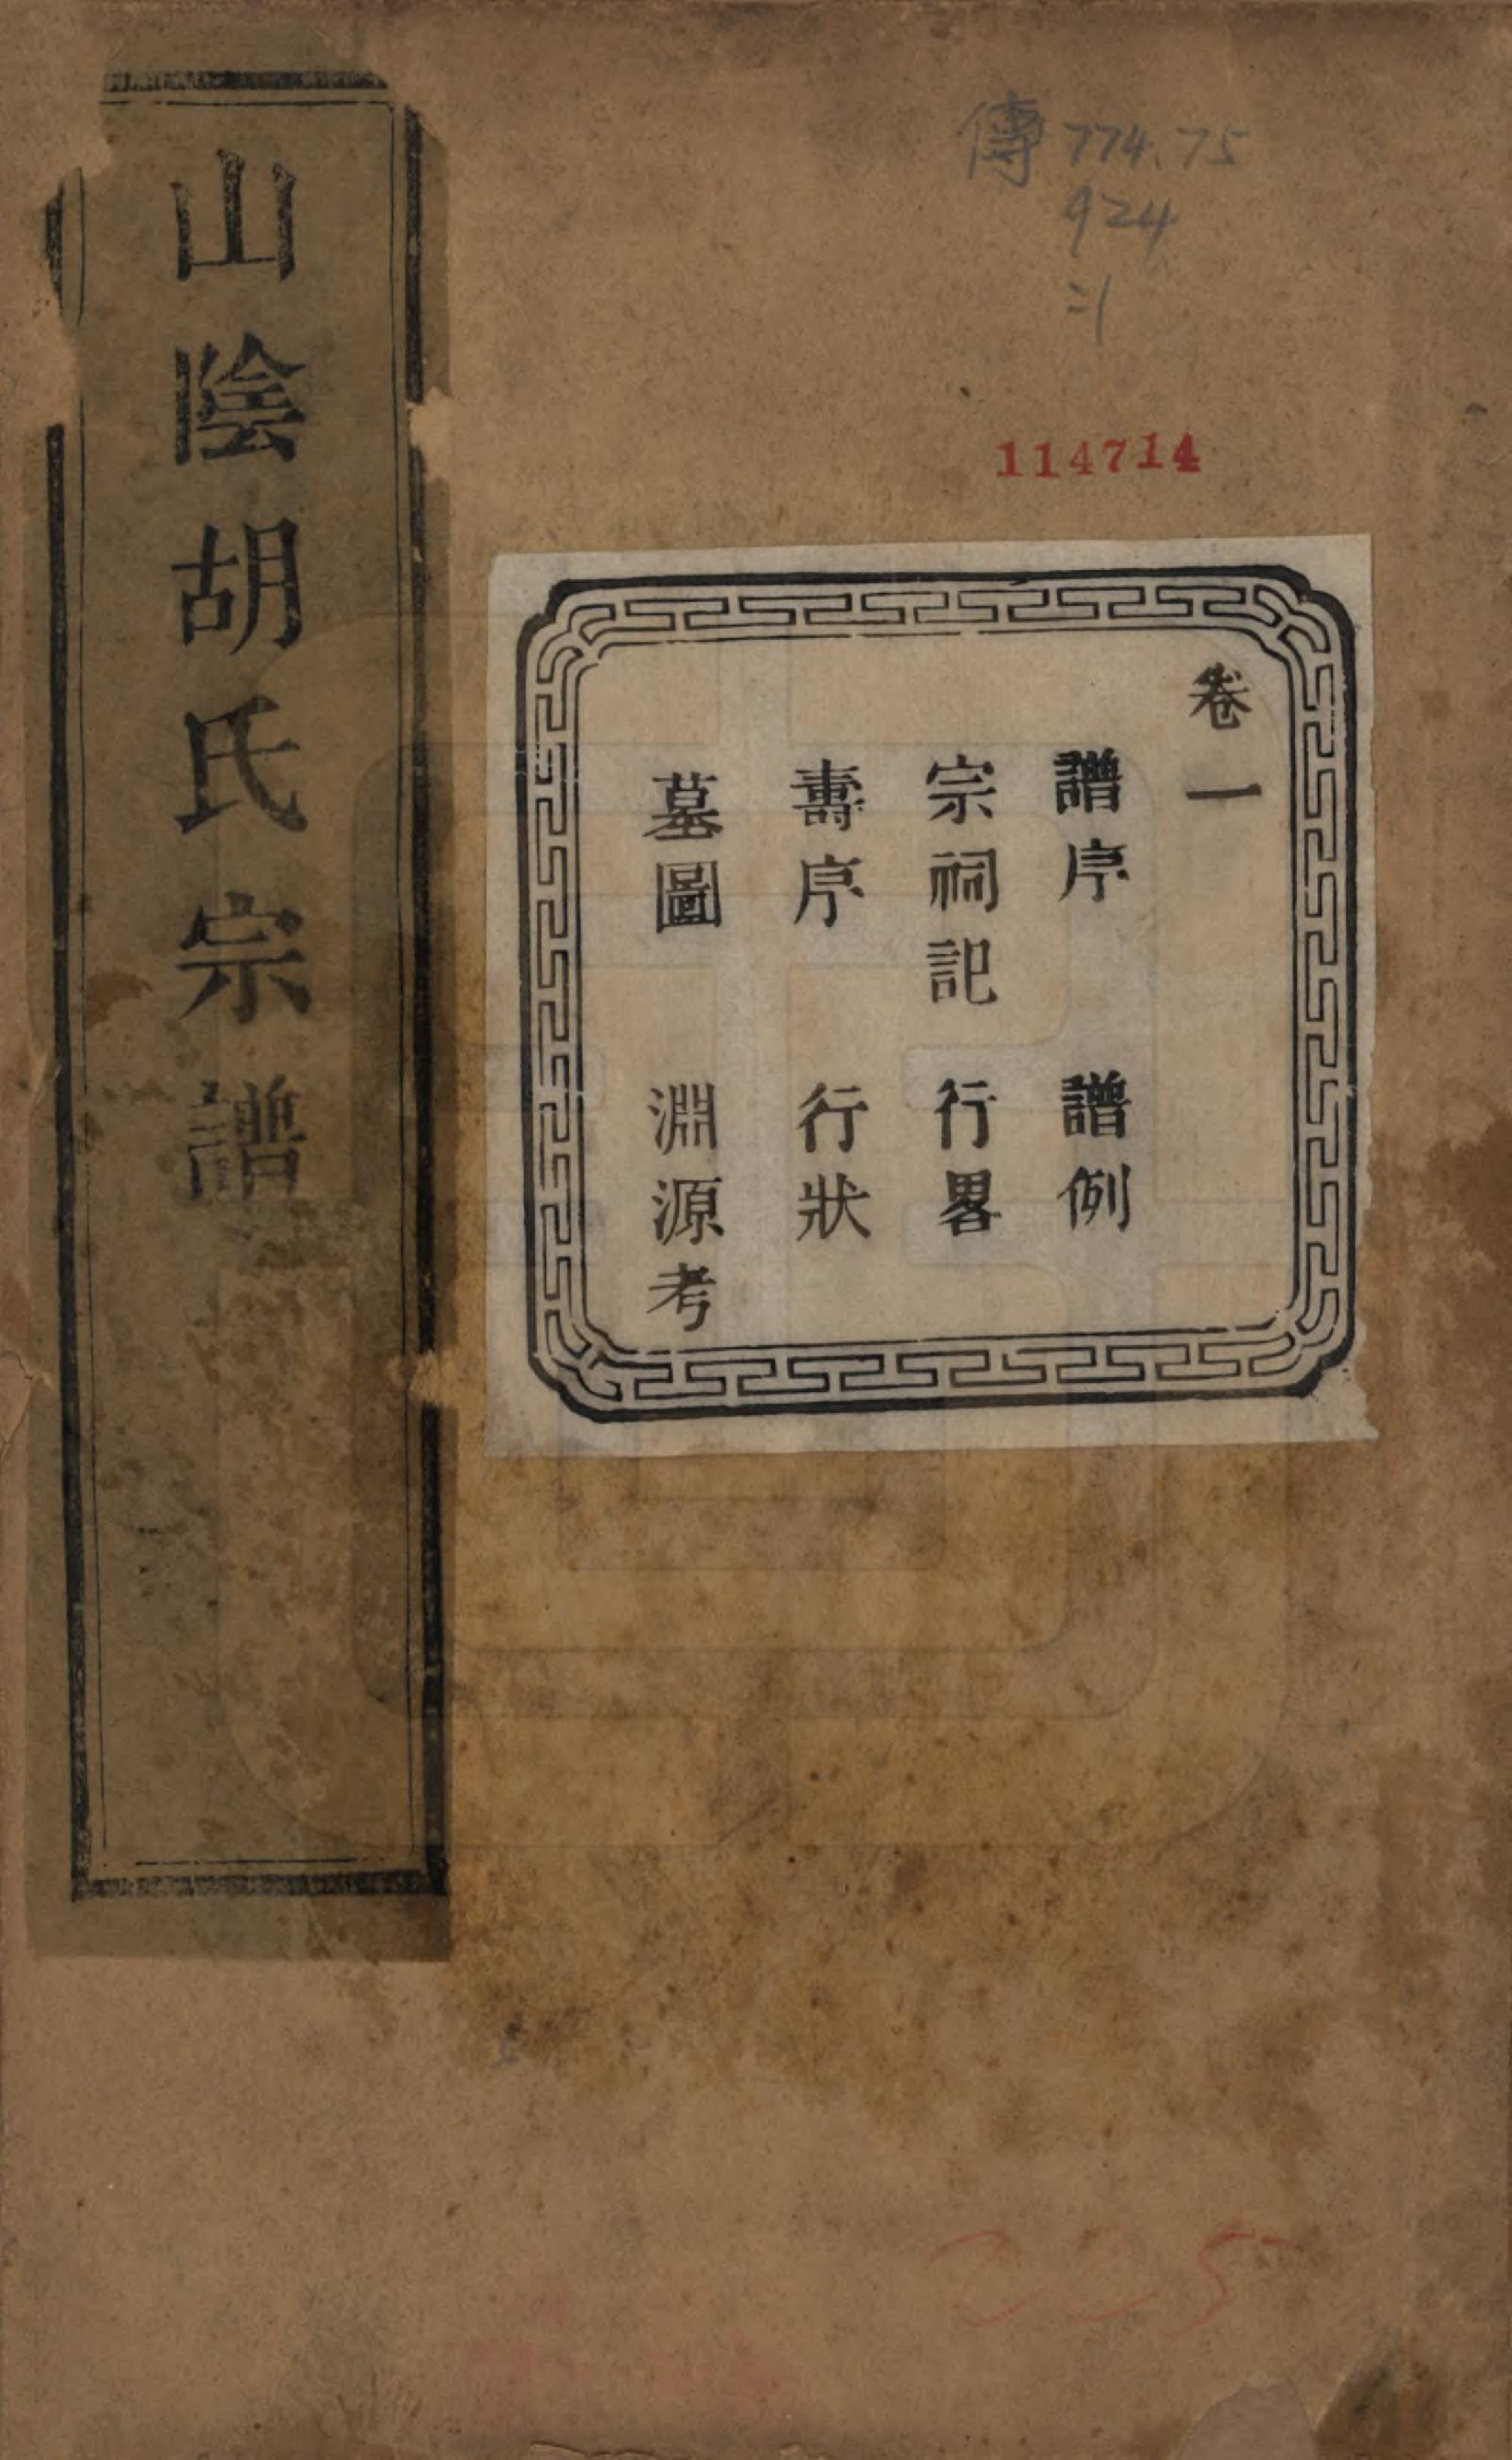 傳 774.75
924
:1
114714
卷一
譜序 譜例
宗祠記 行畧
壽序 行狀
墓圖 淵源考
山陰胡氏宗譜
225